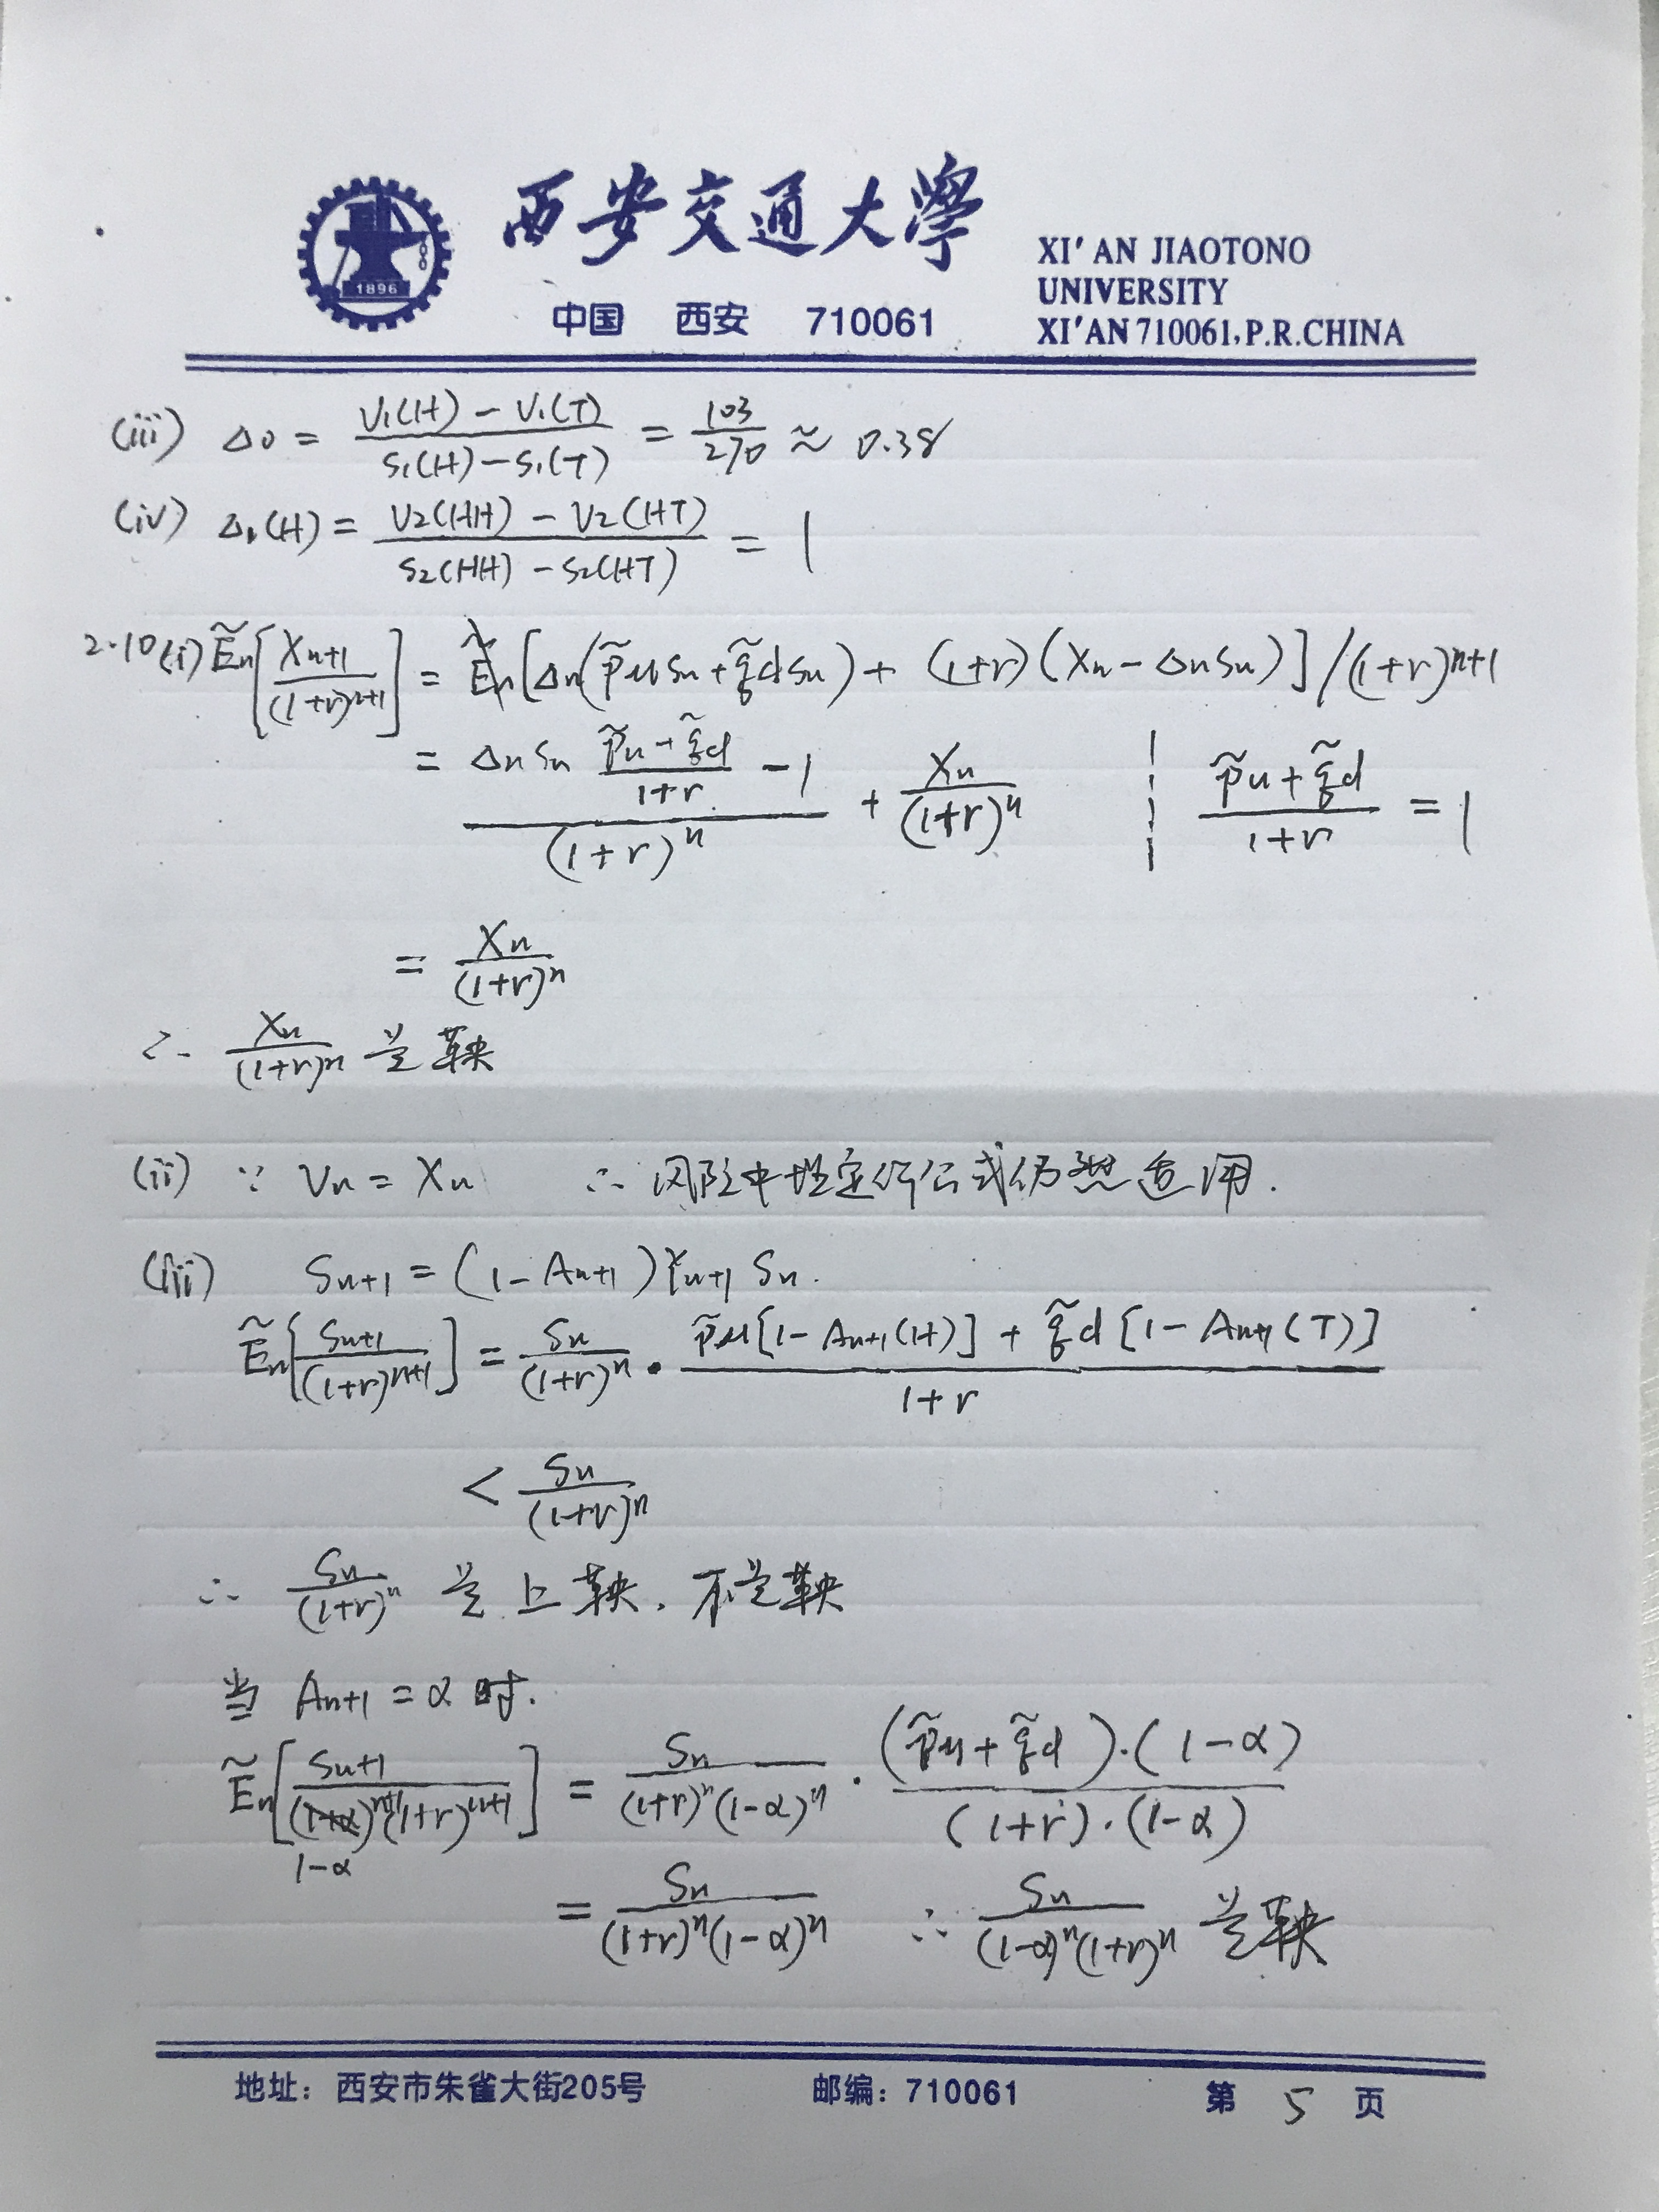 西安交通大學
XI'AN JIAOTONO
UNIVERSITY
中国 西安 710061
XI'AN 710061, P.R.CHINA
1896
(iii) Δ0 = (V1(H) − V1(T)) / (S1(H) − S1(T)) = 103/270 ≈ 0.38
(iv) Δ1(H) = (V2(HH) − V2(HT)) / (S2(HH) − S2(HT)) = 1
2.10 (i) Ẽn[Xn+1/(1+r)^(n+1)] = Ẽn[Δn(p̃uSn + q̃dSn) + (1+r)(Xn − ΔnSn)] / (1+r)^(n+1)
= (ΔnSn (p̃u + q̃d)/(1+r) − 1)/(1+r)^n + Xn/(1+r)^n ¦ (p̃u + q̃d)/(1+r) = 1
= Xn/(1+r)^n
∴ Xn/(1+r)^n 是鞅
(ii) ∵ Vn = Xn ∴ 风险中性定价公式仍然适用.
(iii) Sn+1 = (1 − An+1)Yn+1 Sn.
Ẽn[Sn+1/(1+r)^(n+1)] = Sn/(1+r)^n · (p̃u[1 − An+1(H)] + q̃d[1 − An+1(T)])/(1+r)
< Sn/(1+r)^n
∴ Sn/(1+r)^n 是上鞅, 不是鞅
当 An+1 = α 时.
Ẽn[Sn+1/((1−α)^(n+1)(1+r)^(n+1))] = Sn/((1+r)^n(1−α)^n) · ((p̃u + q̃d)·(1−α))/((1+r)·(1−α))
= Sn/((1+r)^n(1−α)^n) ∴ Sn/((1−α)^n(1+r)^n) 是鞅
地址：西安市朱雀大街205号 邮编：710061 第 5 页